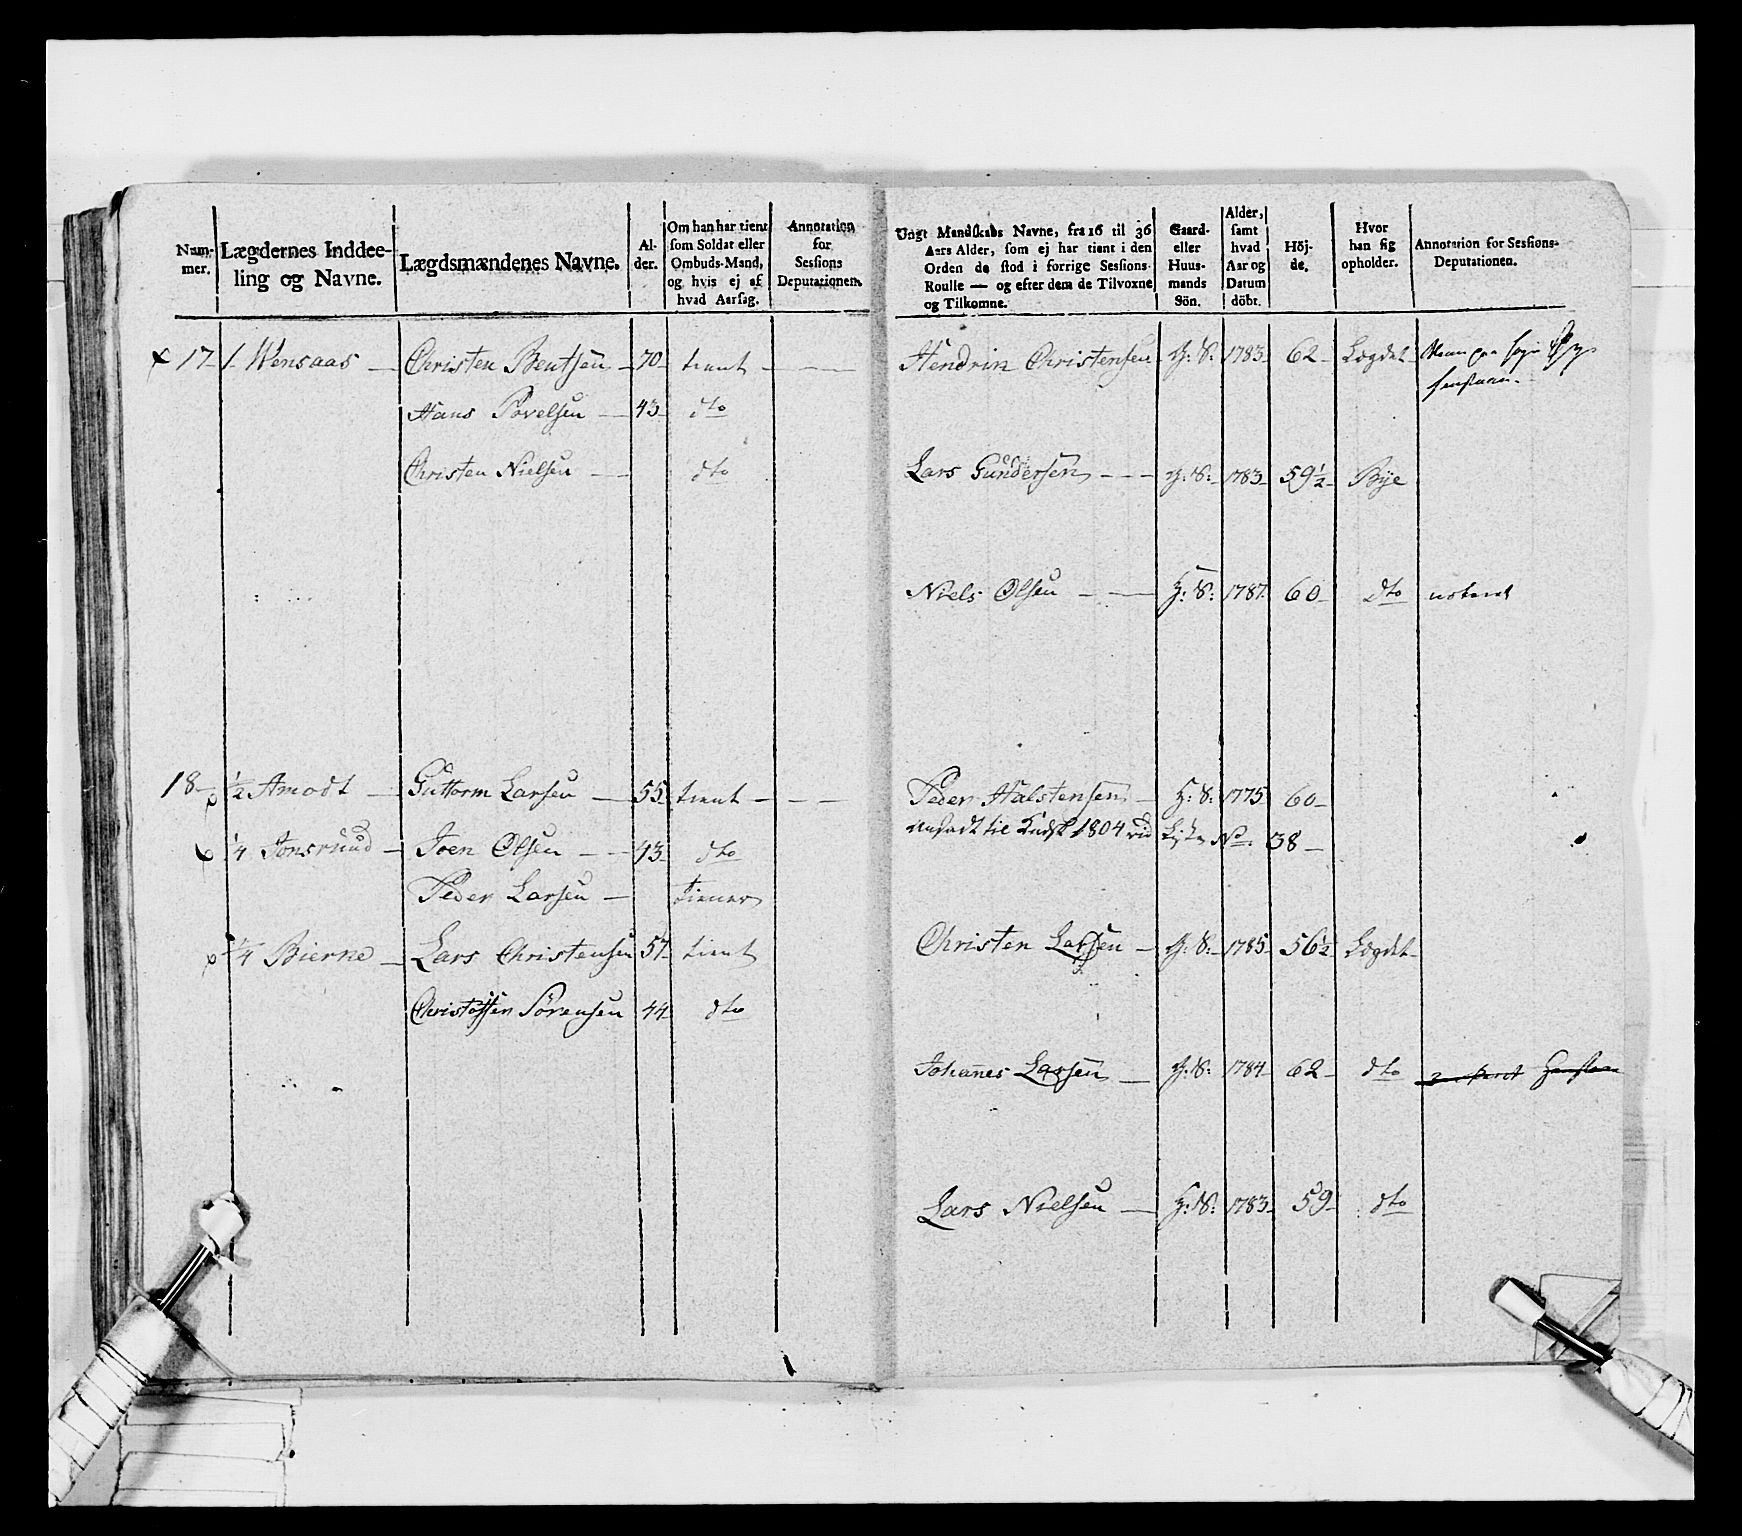 Num-
mer.
Lægdernes Inddee-
ling og Navne.
Lægdsmændenes Navne.
Al-
der.
Om han har tient
som Soldat eller
Ombuds-Mand,
og hvis ej af
hvad Aarsag.
Annotation
for
Sessions
Deputationen.
17 1 Wensaas Christen Bentsen 70 tient
Hans Povelsen 43 dto
Christen Nielsen dto
18 1/2 Amodt Guttorm Larsen 55 tient
1/4 Jonsruud Joen Olsen 43 dto
Peder Larsen tiener
1/4 Bierke Lars Christensen 57 tient
Christoffer Sörensen 44 dto
Ungt Mandskabs Navne, fra 16 til 36
Aars Alder, som ej har tient i den
Orden de stod i forrige Sessions-
Roulle — og efter dem de Tilvoxne
og Tilkomne.
Gaard-
eller
Huus-
mands
Sön.
Alder,
samt
hvad
Aar og
Datum
döbt.
Höj-
de.
Hvor
han sig
opholder.
Annotation for Sessions-
Deputationen.
Hendrin Christensen G: S: 1783 62 Lægdet
Lars Gundersen G: S: 1783 59 1/2 Bye
Niels Olsen H: S: 1787 60 dto noteret
Peder Halstensen H: S: 1775 60
ansadt til 1804 ved Liste No. 38
Christen Larsen G: S: 1785 56 1/2 Lægdet
Johannes Larsen G: S: 1784 62 dto
Lars Nielsen H: S: 1783 59 dto